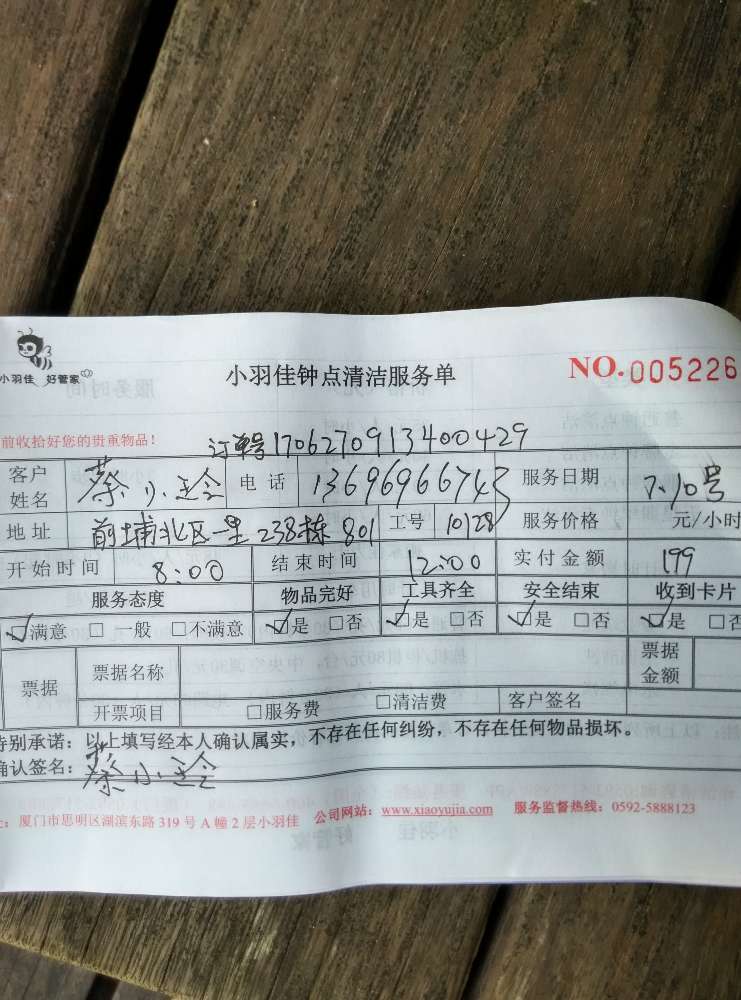 小羽佳 好管家
小羽佳钟点清洁服务单
NO.005226
前收拾好您的贵重物品!
订单号170627091340 0429
客户姓名 蔡小玲 电话 13696966743 服务日期 7.10号
地址 前埔北区一里238栋801 工号 10128 服务价格 元/小时
开始时间 8:00 结束时间 12:00 实付金额 199
服务态度 物品完好 工具齐全 安全结束 收到卡片
☑满意 □一般 □不满意 ☑是 □否 ☑是 □否 ☑是 □否 ☑是 □否
票据 票据名称 票据金额
开票项目 □服务费 □清洁费 客户签名
特别承诺:以上填写经本人确认属实,不存在任何纠纷,不存在任何物品损坏。
确认签名:蔡小玲
厦门市思明区湖滨东路319号A幢2层小羽佳 公司网站:www.xiaoyujia.com 服务监督热线:0592-5888123